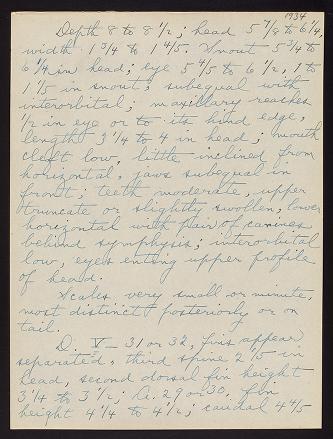 1934
Depth 8 to 8 1/2; head 5 7/8 to 6 1/4,
width 1 3/4 to 1 4/5. Snout 5 3/4 to
6 1/4 in head; eye 5 4/5 to 6 1/2, 1 to
1 1/5 in snout, subequal with
interorbital; maxillary reaches
1/2 in eye or to its hind edge,
length 3 1/4 to 4 in head; mouth
cleft low, little inclined from
horizontal, jaws subequal in
front; teeth moderate, upper
truncate or slightly swollen, lower
horizontal with pair of canines
behind symphysis; interorbital
low, eyes enting upper profile
of head.
Scales very small or minute,
most distinct posteriorly or on
tail.
D. V - 31 or 32, fins appear
separated, third spine 2 1/5 in
head, second dorsal fin height
3 1/4 to 3 1/2; A. 29 or 30, fin
height 4 1/4 to 4 1/2; caudal 4 4/5